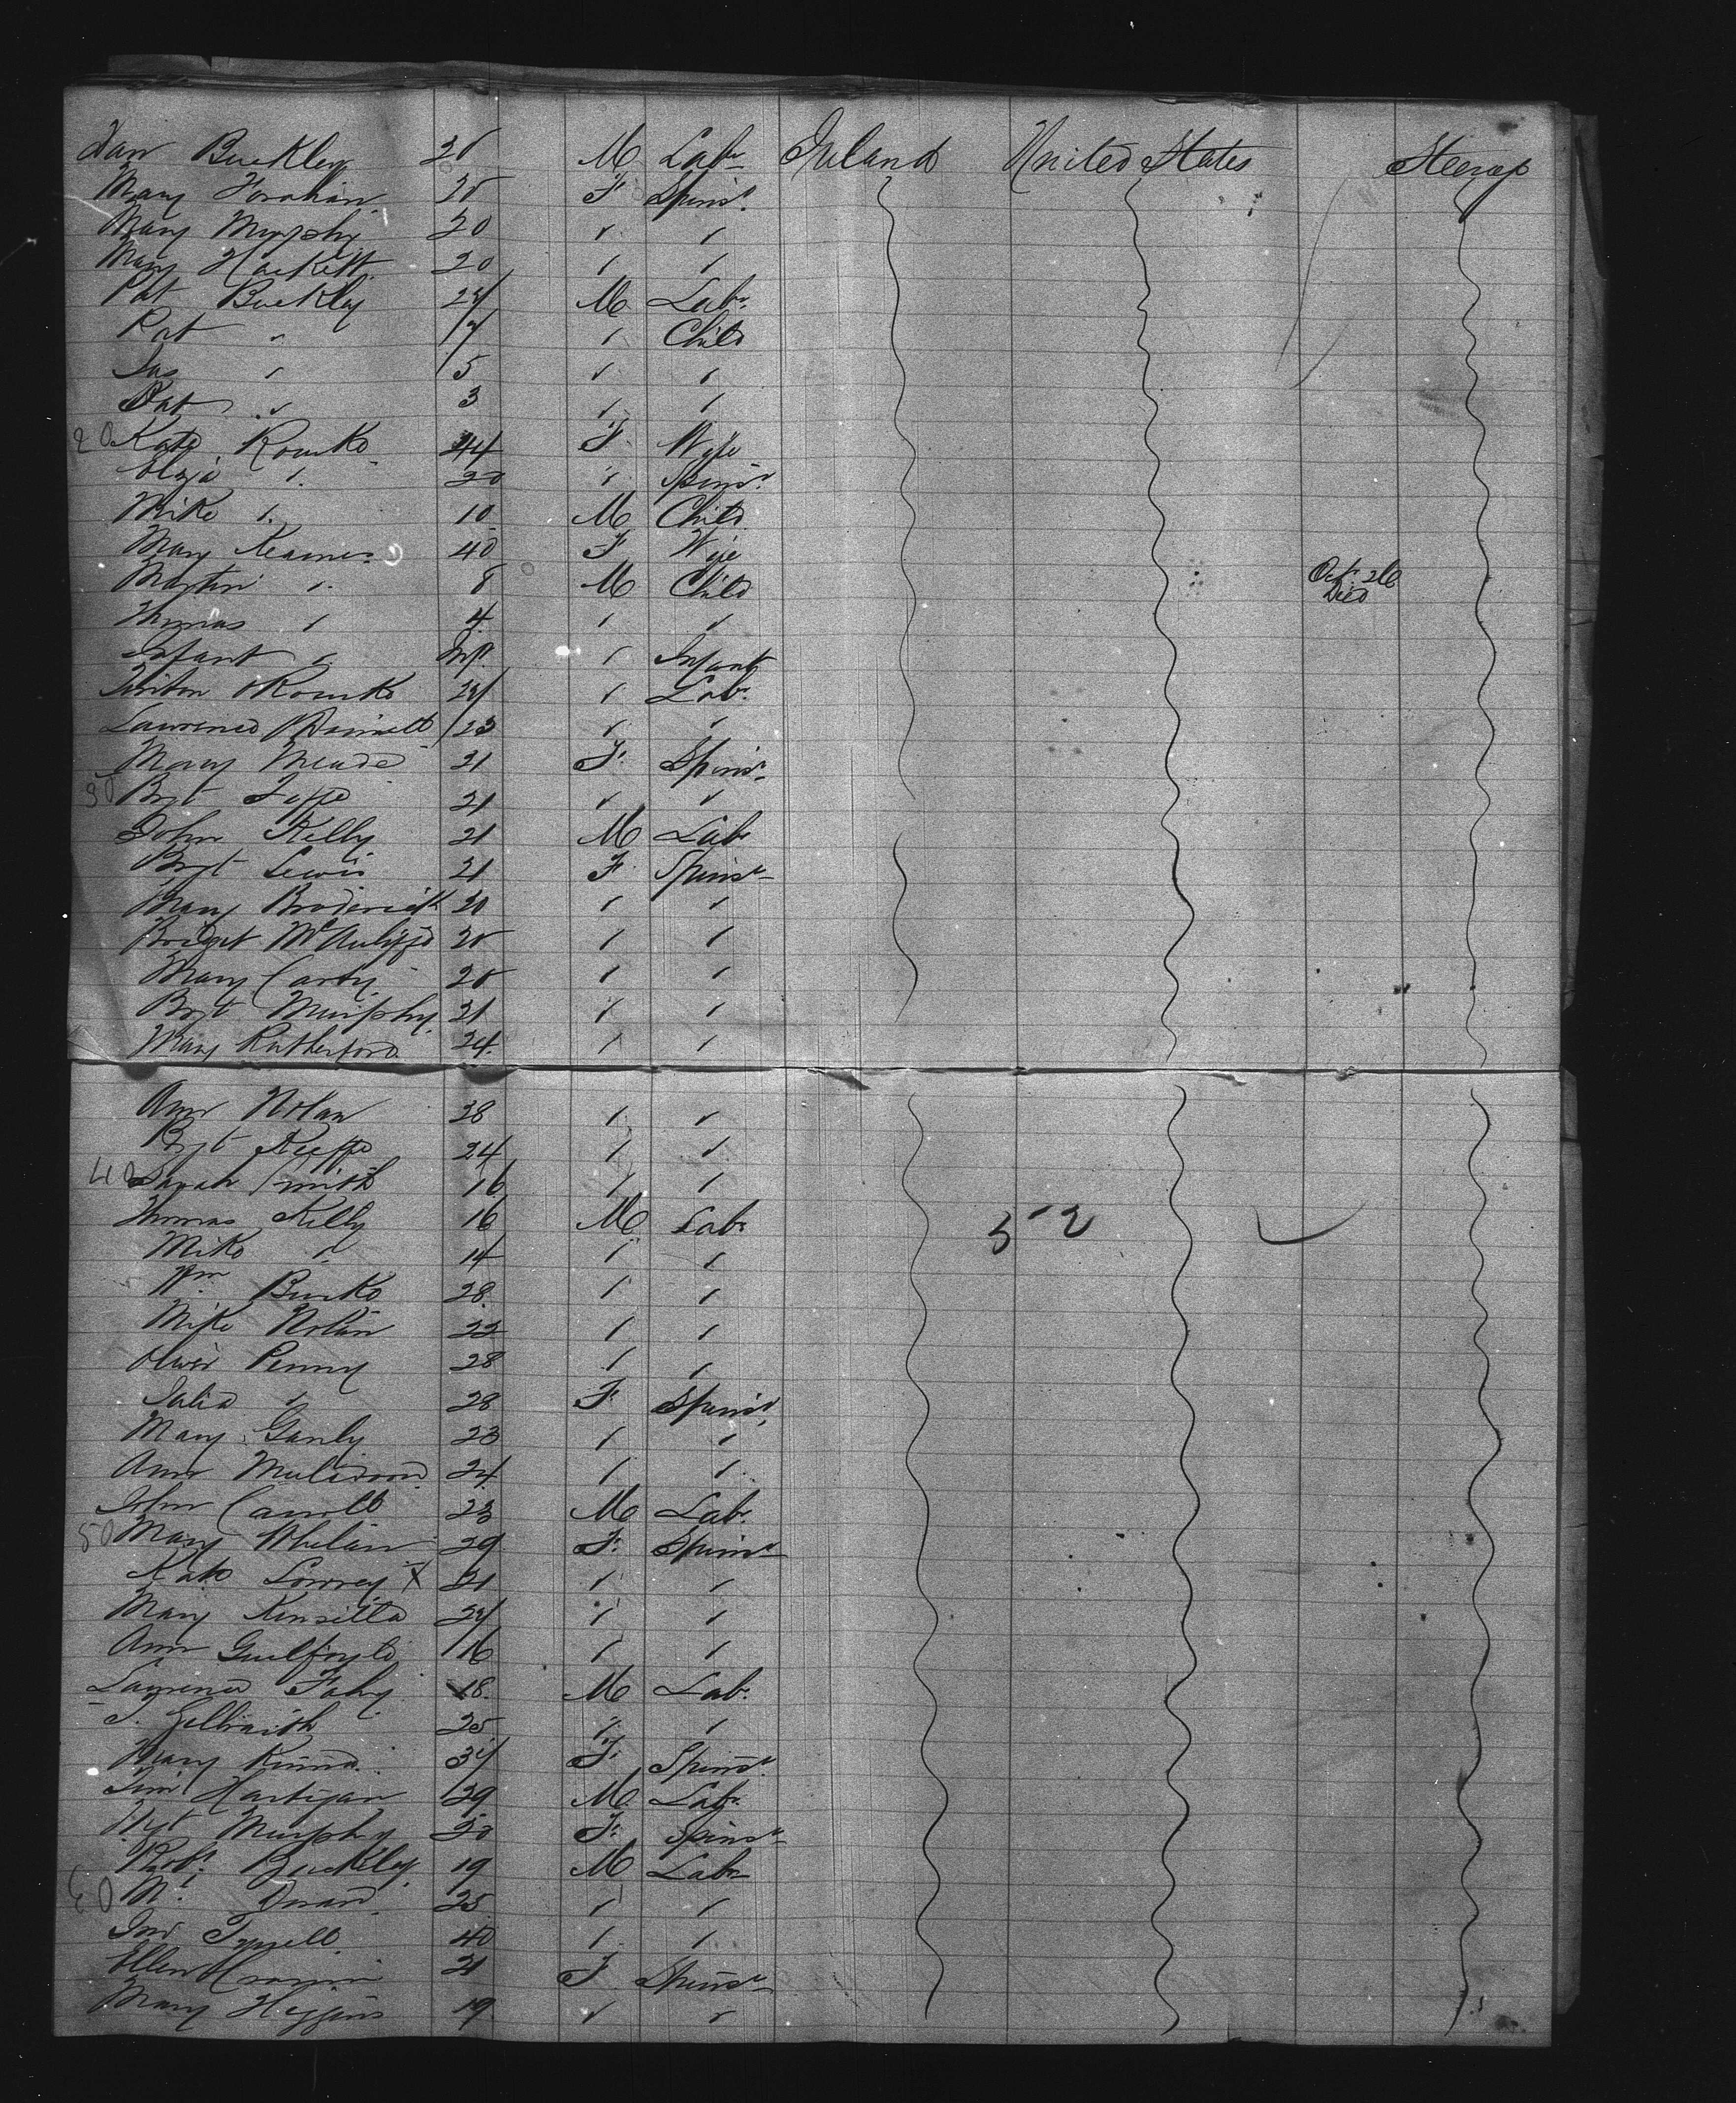 Dan Buckley 20 M Labr Ireland United States Steerage
Mary Forahan 20 F Spinsr
Mary Murphy 20 " "
Mary Hackett 20 " "
Pat Buckley 24 M Labr
Pat " 7 " Child
Jas " 5 " "
Pat " 3 " "
20 Kate Rourke 44 F Wife
Eliza " 20 " Spinsr
Mike " 10 M Child
Mary Kearnes 40 F Wife
Martin " 8 M Child Oct 26 Died
Thomas " 4 " "
Infant " Inft " Infant
Rourke 24 " Labr
Lawrence 23 " "
Mary Meade 21 F Spinsr
30 Bgt 21 " "
John Kelly 21 M Labr
Bgt Lewis 21 F Spinsr
Mary Broderick 20 " "
Bridget McAuliffe 20 " "
Mary Carty 20 " "
Bgt Murphy 21 " "
Mary Rutherford 24 " "
Ann Nolan 28 " "
Bgt Keeffe 24 " "
40 Sarah Smith 16 " "
Thomas Kelly 16 M Labr 52
Mike " 14 " "
Wm Burke 28 " "
Mike Nolan 22 " "
Oliver Penny 28 " "
Julia " 28 F Spinsr
Mary Ganly 23 " "
Ann Muldoon 24 " "
John Carroll 23 M Labr
50 Mary Whelan 29 F Spinsr
Kate Lowrey X 21 " "
Mary Kinsella 24 " "
Ann Guilfoyle 16 " "
Lawrence Fahy 18 M Labr
J. Gilbraith 25 " "
Mary 34 F Spinsr
Tim Hartigan 29 M Labr
Murphy 20 F Spinsr
Robt Buckley 19 M Labr
60 25 " "
Jno Tyrrell 40 " "
Ellen Cronin 21 F Spinsr
Mary Higgins 19 " "